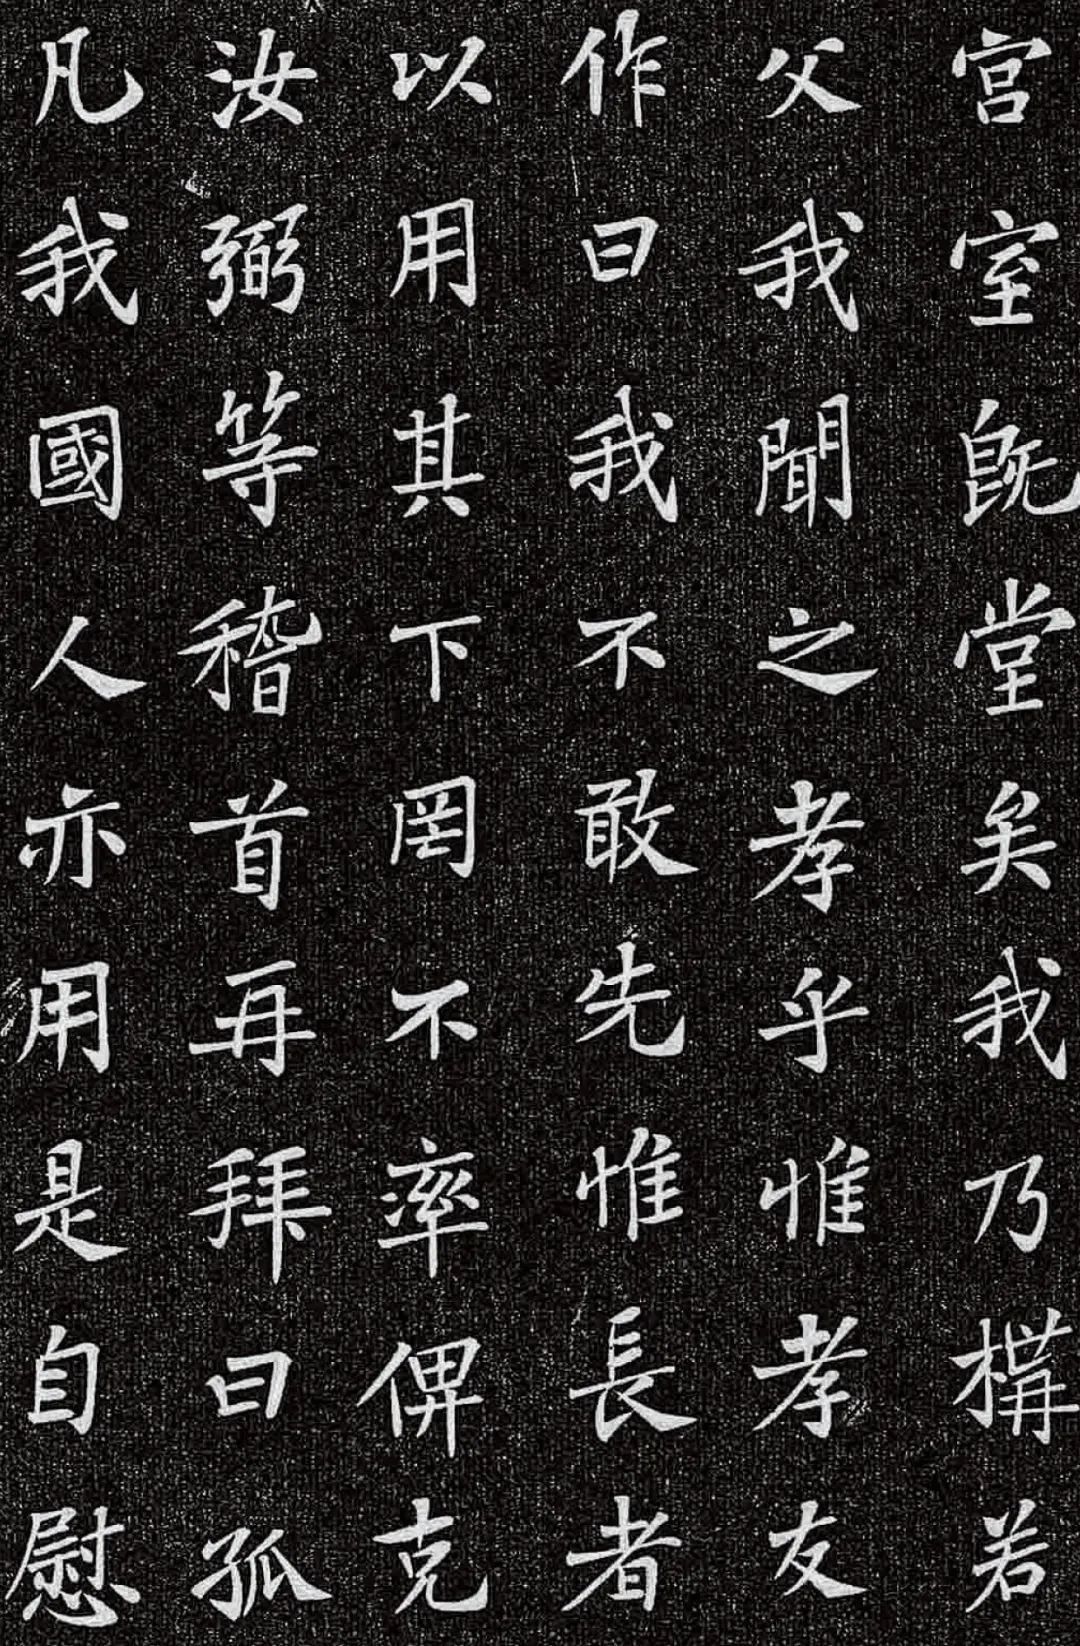 宫室既堂矣我乃構若
父我聞之孝乎惟孝友
作曰我不敢先惟長者
以用其下罔不率俾克
汝弼等稽首再拜曰孤
凡我國人亦用是自慰